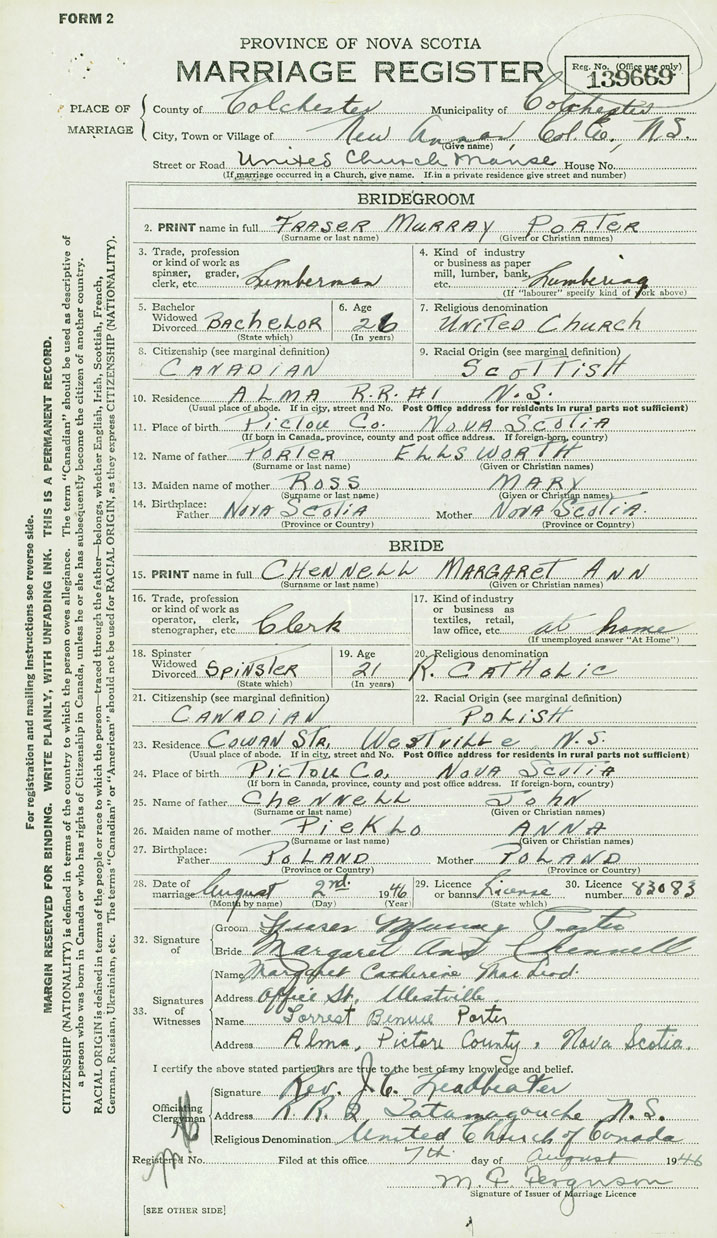 FORM 2
PROVINCE OF NOVA SCOTIA
MARRIAGE REGISTER
Reg. No. (Office use only)
139669
PLACE OF MARRIAGE
County of Colchester Municipality of Colchester
City, Town or Village of New Annan, Col. Co., N.S.
(Give name)
Street or Road United Church Manse House No.
(If marriage occurred in a Church, give name. If in a private residence give street and number)
BRIDEGROOM
2. PRINT name in full FRASER MURRAY PORTER
(Surname or last name) (Given or Christian names)
3. Trade, profession or kind of work as spinner, grader, clerk, etc. Lumberman
4. Kind of industry or business as paper mill, lumber, bank, etc. Lumbering
(If "labourer" specify kind of work above)
5. Bachelor Widowed Divorced BACHELOR
(State which)
6. Age 26
(In years)
7. Religious denomination
UNITED CHURCH
8. Citizenship (see marginal definition)
CANADIAN
9. Racial Origin (see marginal definition)
SCOTTISH
10. Residence ALMA R.R. #1 N.S.
(Usual place of abode. If in city, street and No. Post Office address for residents in rural parts not sufficient)
11. Place of birth PICTOU Co. NOVA SCOTIA
(If born in Canada, province, county and post office address. If foreign-born, country)
12. Name of father PORTER ELLSWORTH
(Surname or last name) (Given or Christian names)
13. Maiden name of mother ROSS MARY
(Surname or last name) (Given or Christian names)
14. Birthplace: Father NOVA SCOTIA Mother NOVA SCOTIA.
(Province or Country) (Province or Country)
BRIDE
15. PRINT name in full CHENNELL MARGARET ANN
(Surname or last name) (Given or Christian names)
16. Trade, profession or kind of work as operator, clerk, stenographer, etc. Clerk
17. Kind of industry or business as textiles, retail, law office, etc. at home
(If unemployed answer "At Home")
18. Spinster Widowed Divorced SPINSTER
(State which)
19. Age 21
(In years)
20. Religious denomination
R. CATHOLIC
21. Citizenship (see marginal definition)
CANADIAN
22. Racial Origin (see marginal definition)
POLISH
23. Residence COWAN STR, WESTVILLE N.S.
(Usual place of abode. If in city, street and No. Post Office address for residents in rural parts not sufficient)
24. Place of birth PICTOU Co, NOVA SCOTIA
(If born in Canada, province, county and post office address. If foreign-born, country)
25. Name of father CHENNELL JOHN
(Surname or last name) (Given or Christian names)
26. Maiden name of mother PIEKLO ANNA
(Surname or last name) (Given or Christian names)
27. Birthplace: Father POLAND Mother POLAND
(Province or Country) (Province or Country)
28. Date of marriage August 2nd. 1946
(Month by name) (Day) (Year)
29. Licence or banns License
(State which)
30. Licence number 83083
32. Signature of
Groom Fraser Murray Porter
Bride Margaret Ann Chennell
33. Signatures of Witnesses
Name Margaret Catherine MacLeod.
Address Office St. Westville.
Name Forrest Bennie Porter
Address Alma, Pictou County, Nova Scotia.
I certify the above stated particulars are true to the best of my knowledge and belief.
Officiating Clergyman
Signature Rev. J. C. Leadbeater
Address R.R. 2 Tatamagouche N.S.
Religious Denomination United Church of Canada
Registered No. Filed at this office 7th day of August 1946
M. C. Ferguson
Signature of Issuer of Marriage Licence
[SEE OTHER SIDE]
For registration and mailing instructions see reverse side.
MARGIN RESERVED FOR BINDING. WRITE PLAINLY, WITH UNFADING INK. THIS IS A PERMANENT RECORD.
CITIZENSHIP (NATIONALITY) is defined in terms of the country to which the person owes allegiance. The term "Canadian" should be used as descriptive of
a person who was born in Canada or who has rights of Citizenship in Canada, unless he or she has subsequently become the citizen of another country.
RACIAL ORIGIN is defined in terms of the people or race to which the person—traced through the father—belongs, whether English, Irish, Scottish, French,
German, Russian, Ukrainian, etc. The terms "Canadian" or "American" should not be used for RACIAL ORIGIN, as they express CITIZENSHIP (NATIONALITY).